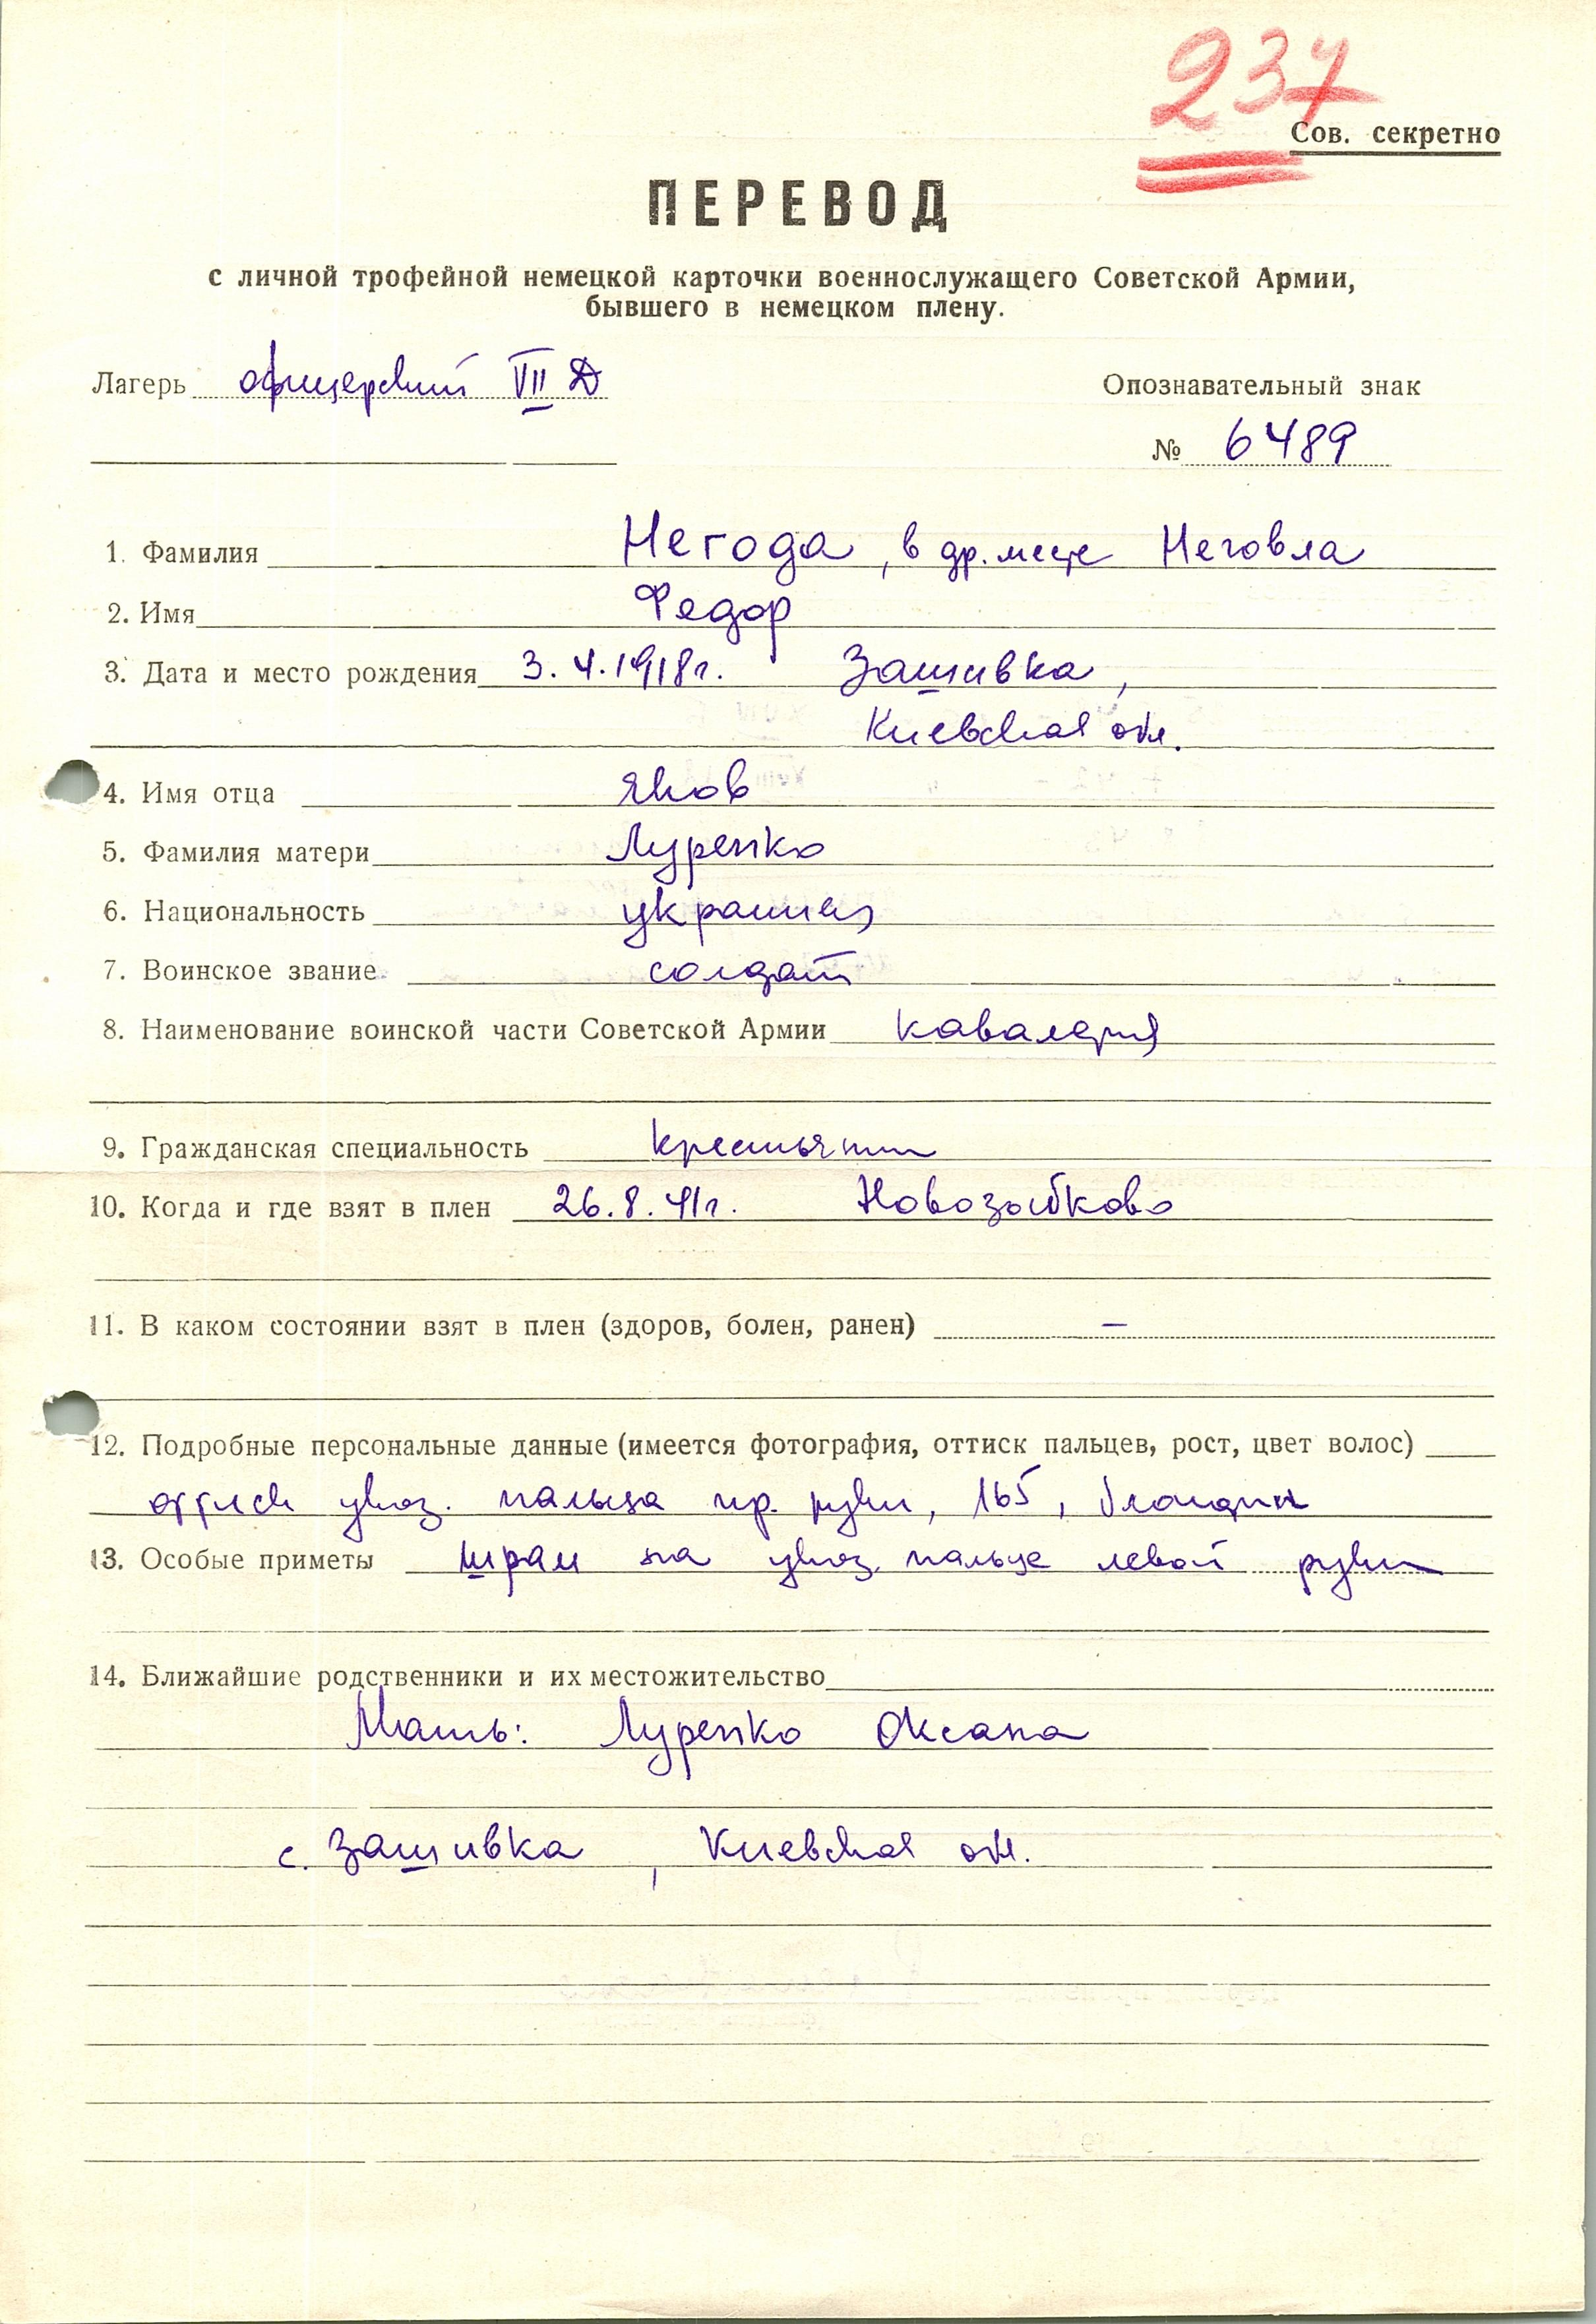 237
Сов. секретно
ПЕРЕВОД
с личной трофейной немецкой карточки военнослужащего Советской Армии,
бывшего в немецком плену.
Лагерь офицерский VII Д
Опознавательный знак
№ 6489
1. Фамилия Негода, в др. месте Неговла
2. Имя Федор
3. Дата и место рождения 3.4.1918г. Зашивка,
Киевская обл.
4. Имя отца Яков
5. Фамилия матери Луренко
6. Национальность украинец
7. Воинское звание солдат
8. Наименование воинской части Советской Армии кавалерия
9. Гражданская специальность крестьянин
10. Когда и где взят в плен 26.8.41г. Новозыбково
11. В каком состоянии взят в плен (здоров, болен, ранен) —
12. Подробные персональные данные (имеется фотография, оттиск пальцев, рост, цвет волос)
оттиск указ. пальца пр. руки, 165, блондин
13. Особые приметы шрам на указ. пальце левой руки
14. Ближайшие родственники и их местожительство
Мать: Луренко Оксана
с. Зашивка, Киевская обл.